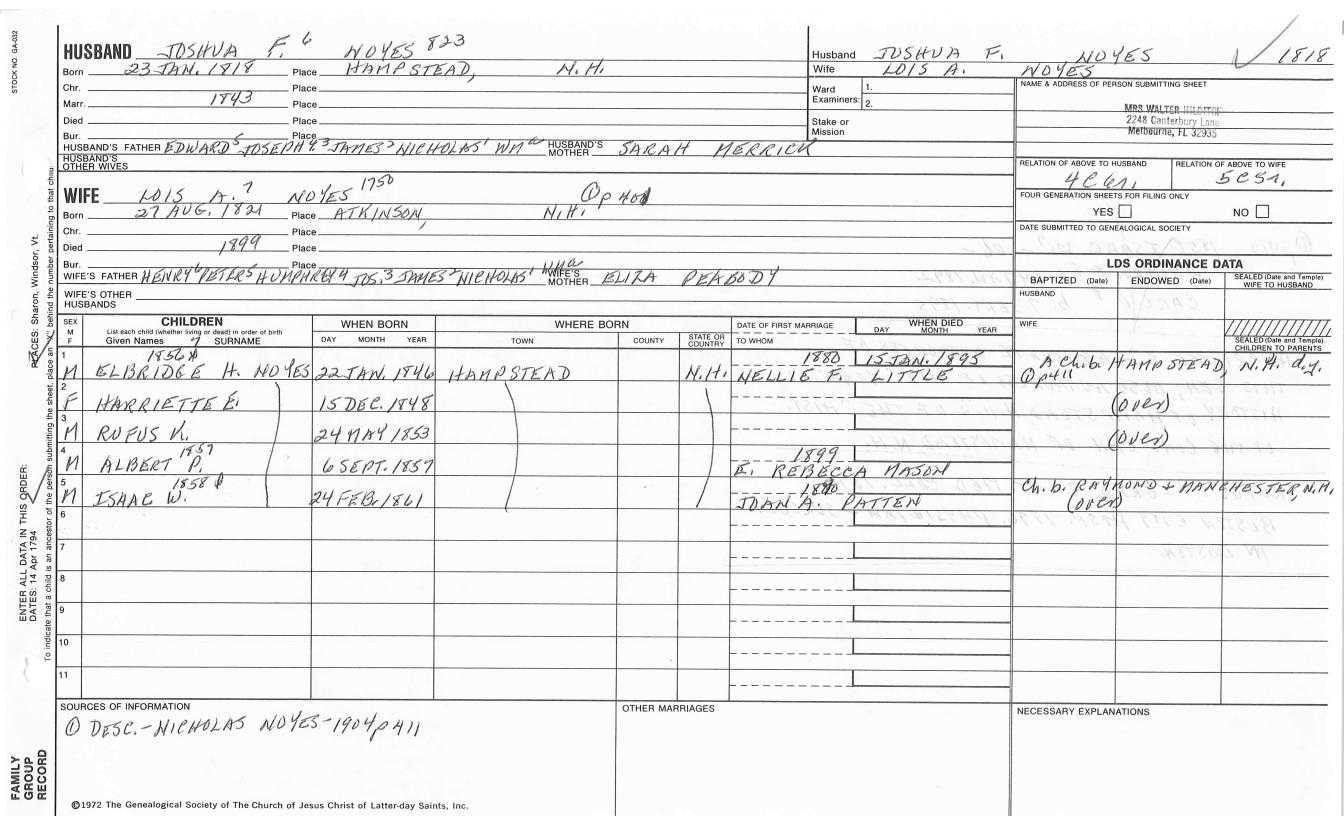 STOCK NO. GA-032
HUSBAND JOSHUA F. 6 NOYES 823
Born 23 JAN. 1818 Place HAMPSTEAD, N.H.
Chr. Place
Marr. 1843 Place
Died Place
Bur. Place
HUSBAND'S FATHER EDWARD 5 JOSEPH 4,3 JAMES 2 NICHOLAS 1 WM a HUSBAND'S MOTHER SARAH MERRICK
HUSBAND'S OTHER WIVES
Husband JOSHUA F. NOYES 1818
Wife LOIS A. NOYES
Ward Examiners: 1.
2.
Stake or Mission
NAME & ADDRESS OF PERSON SUBMITTING SHEET
MRS WALTER
2248 Canterbury Lane
Melbourne, FL 32935
RELATION OF ABOVE TO HUSBAND RELATION OF ABOVE TO WIFE
4C6r, 5C5r,
FOUR GENERATION SHEETS FOR FILING ONLY
YES NO
DATE SUBMITTED TO GENEALOGICAL SOCIETY
WIFE LOIS A. 7 NOYES 1750 ① p 401
Born 27 AUG. 1821 Place ATKINSON, N.H.
Chr. Place
Died 1899 Place
Bur. Place
WIFE'S FATHER HENRY 6 PETER 5 HUMPHREY 4 JOS. 3 JAMES 2 NICHOLAS 1 Wm a WIFE'S MOTHER ELIZA PEABODY
WIFE'S OTHER HUSBANDS
LDS ORDINANCE DATA
BAPTIZED (Date) ENDOWED (Date) SEALED (Date and Temple) WIFE TO HUSBAND
HUSBAND
WIFE
SEALED (Date and Temple) CHILDREN TO PARENTS
SEX M F CHILDREN WHEN BORN WHERE BORN DATE OF FIRST MARRIAGE WHEN DIED
List each child (whether living or dead) in order of birth DAY MONTH YEAR
Given Names 7 SURNAME DAY MONTH YEAR TOWN COUNTY STATE OR COUNTRY TO WHOM
1 1856 1880 15 JAN. 1895 A Ch. b. HAMPSTEAD, N.H. d.y.
M ELBRIDGE H. NOYES 22 JAN. 1846 HAMPSTEAD N.H. NELLIE F. LITTLE ① p411
2
F HARRIETTE E. 15 DEC. 1848 (over)
3
M RUFUS K. 24 MAY 1853 (over)
4 1857 1899
M ALBERT P. 6 SEPT. 1857 E. REBECCA MASON
5 1858 1880 Ch. b. RAYMOND + MANCHESTER, N.H.
M ISAAC W. 24 FEB. 1861 JOAN A. PATTEN (over)
6
7
8
9
10
11
SOURCES OF INFORMATION OTHER MARRIAGES NECESSARY EXPLANATIONS
① DESC. - NICHOLAS NOYES - 1904 p 411
©1972 The Genealogical Society of The Church of Jesus Christ of Latter-day Saints, Inc.
FAMILY GROUP RECORD
ENTER ALL DATA IN THIS ORDER:
DATES: 14 Apr 1794
PLACES: Sharon, Windsor, Vt.
To indicate that a child is an ancestor of the person submitting the sheet, place an "X" behind the number pertaining to that child.